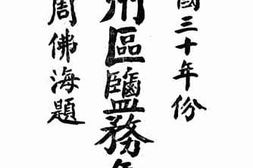 國三十年份
州區鹽務年
周佛海題